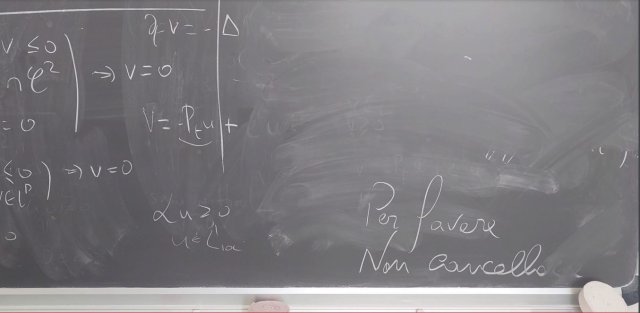 V ≤ 0
∩ 𝒞²
⇒ V = 0
= 0
≤ 0 ) ⇒ V = 0
∂ₜV = -Δ
V = -Pₜu +
ℒu ≥ 0
Per favore
Non cancella